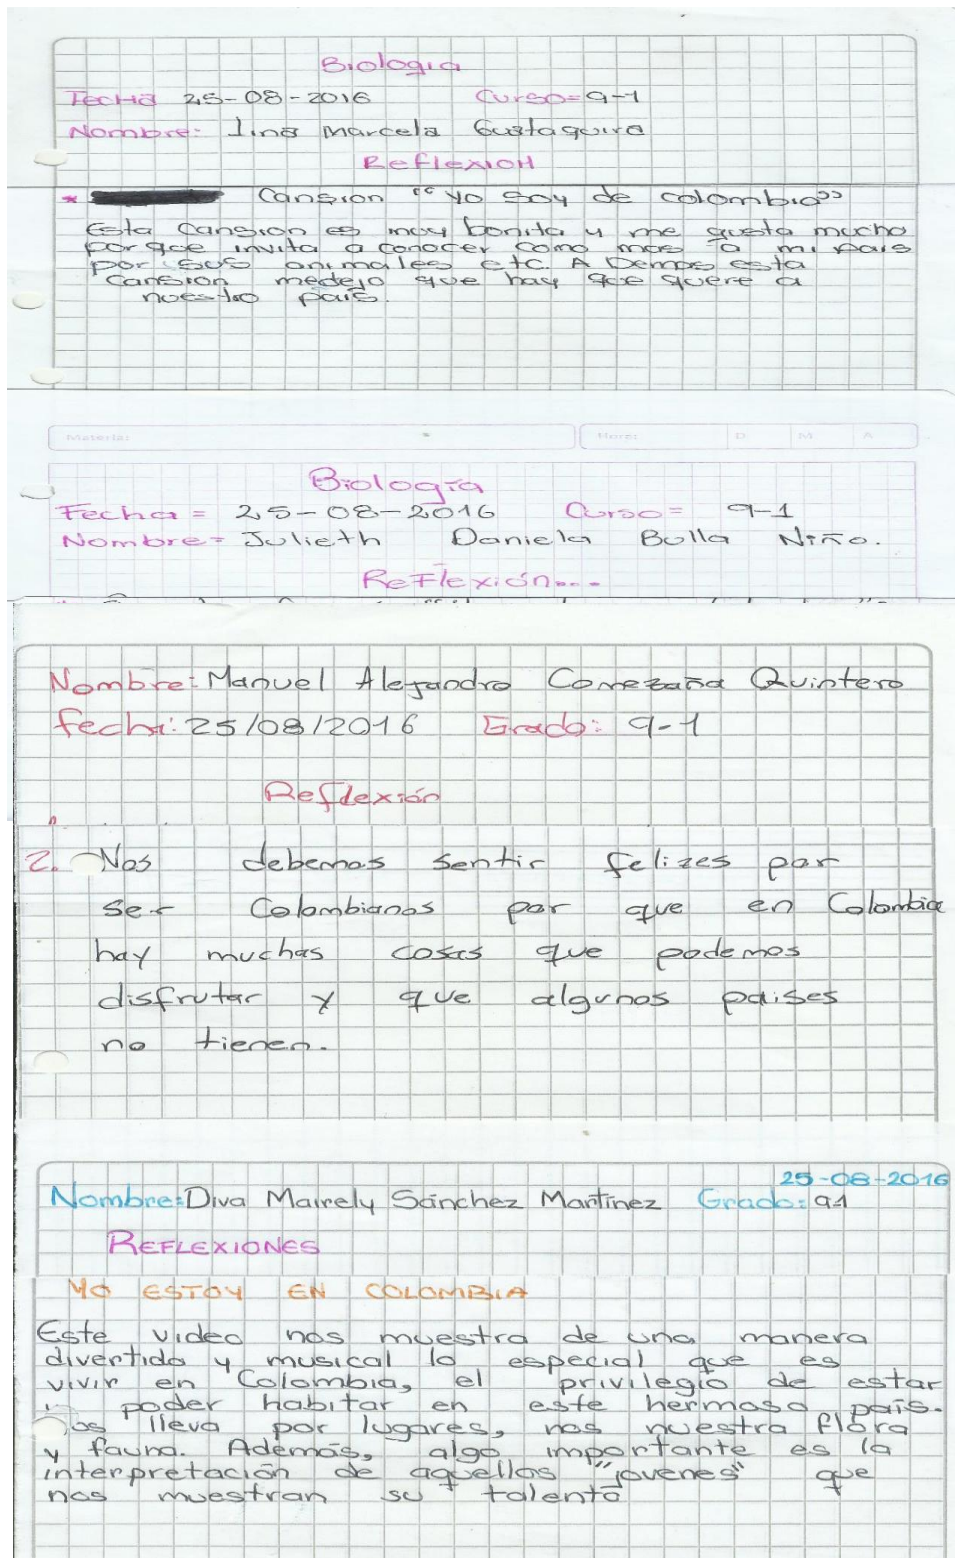 Biologia
Fecha 25-08-2016 Curso=9-1
Nombre: lina Marcela Eustaquira
Reflexion
* Cansion "yo soy de colombia"
Esta Cansion es muy bonita y me gusta mucho
por que invita a conocer como mas a mi pais
por sus animales etc. A Demas esta
cansion medejo que hay que quere a
nuestro pais
Materia: Hora: D M A
Biología
Fecha = 25-08-2016 Curso= 9-1
Nombre= Julieth Daniela Bulla Niño.
Reflexión...
Nombre: Manuel Alejandro Comezaña Quintero
fecha: 25/08/2016 Grado: 9-1
Reflexión
2. Nos debemos sentir felizes por
ser Colombianos por que en Colombia
hay muchas cosas que podemos
disfrutar y que algunos paises
no tienen.
25-08-2016
Nombre: Diva Mairely Sánchez Martínez Grado: 9-1
REFLEXIONES
YO ESTOY EN COLOMBIA
Este video nos muestra de una manera
divertida y musical lo especial que es
vivir en Colombia, el privilegio de estar
poder habitar en este hermoso país.
Nos lleva por lugares, nos muestra flora
y fauna. Además, algo importante es la
interpretación de aquellos "jovenes" que
nos muestran su talento